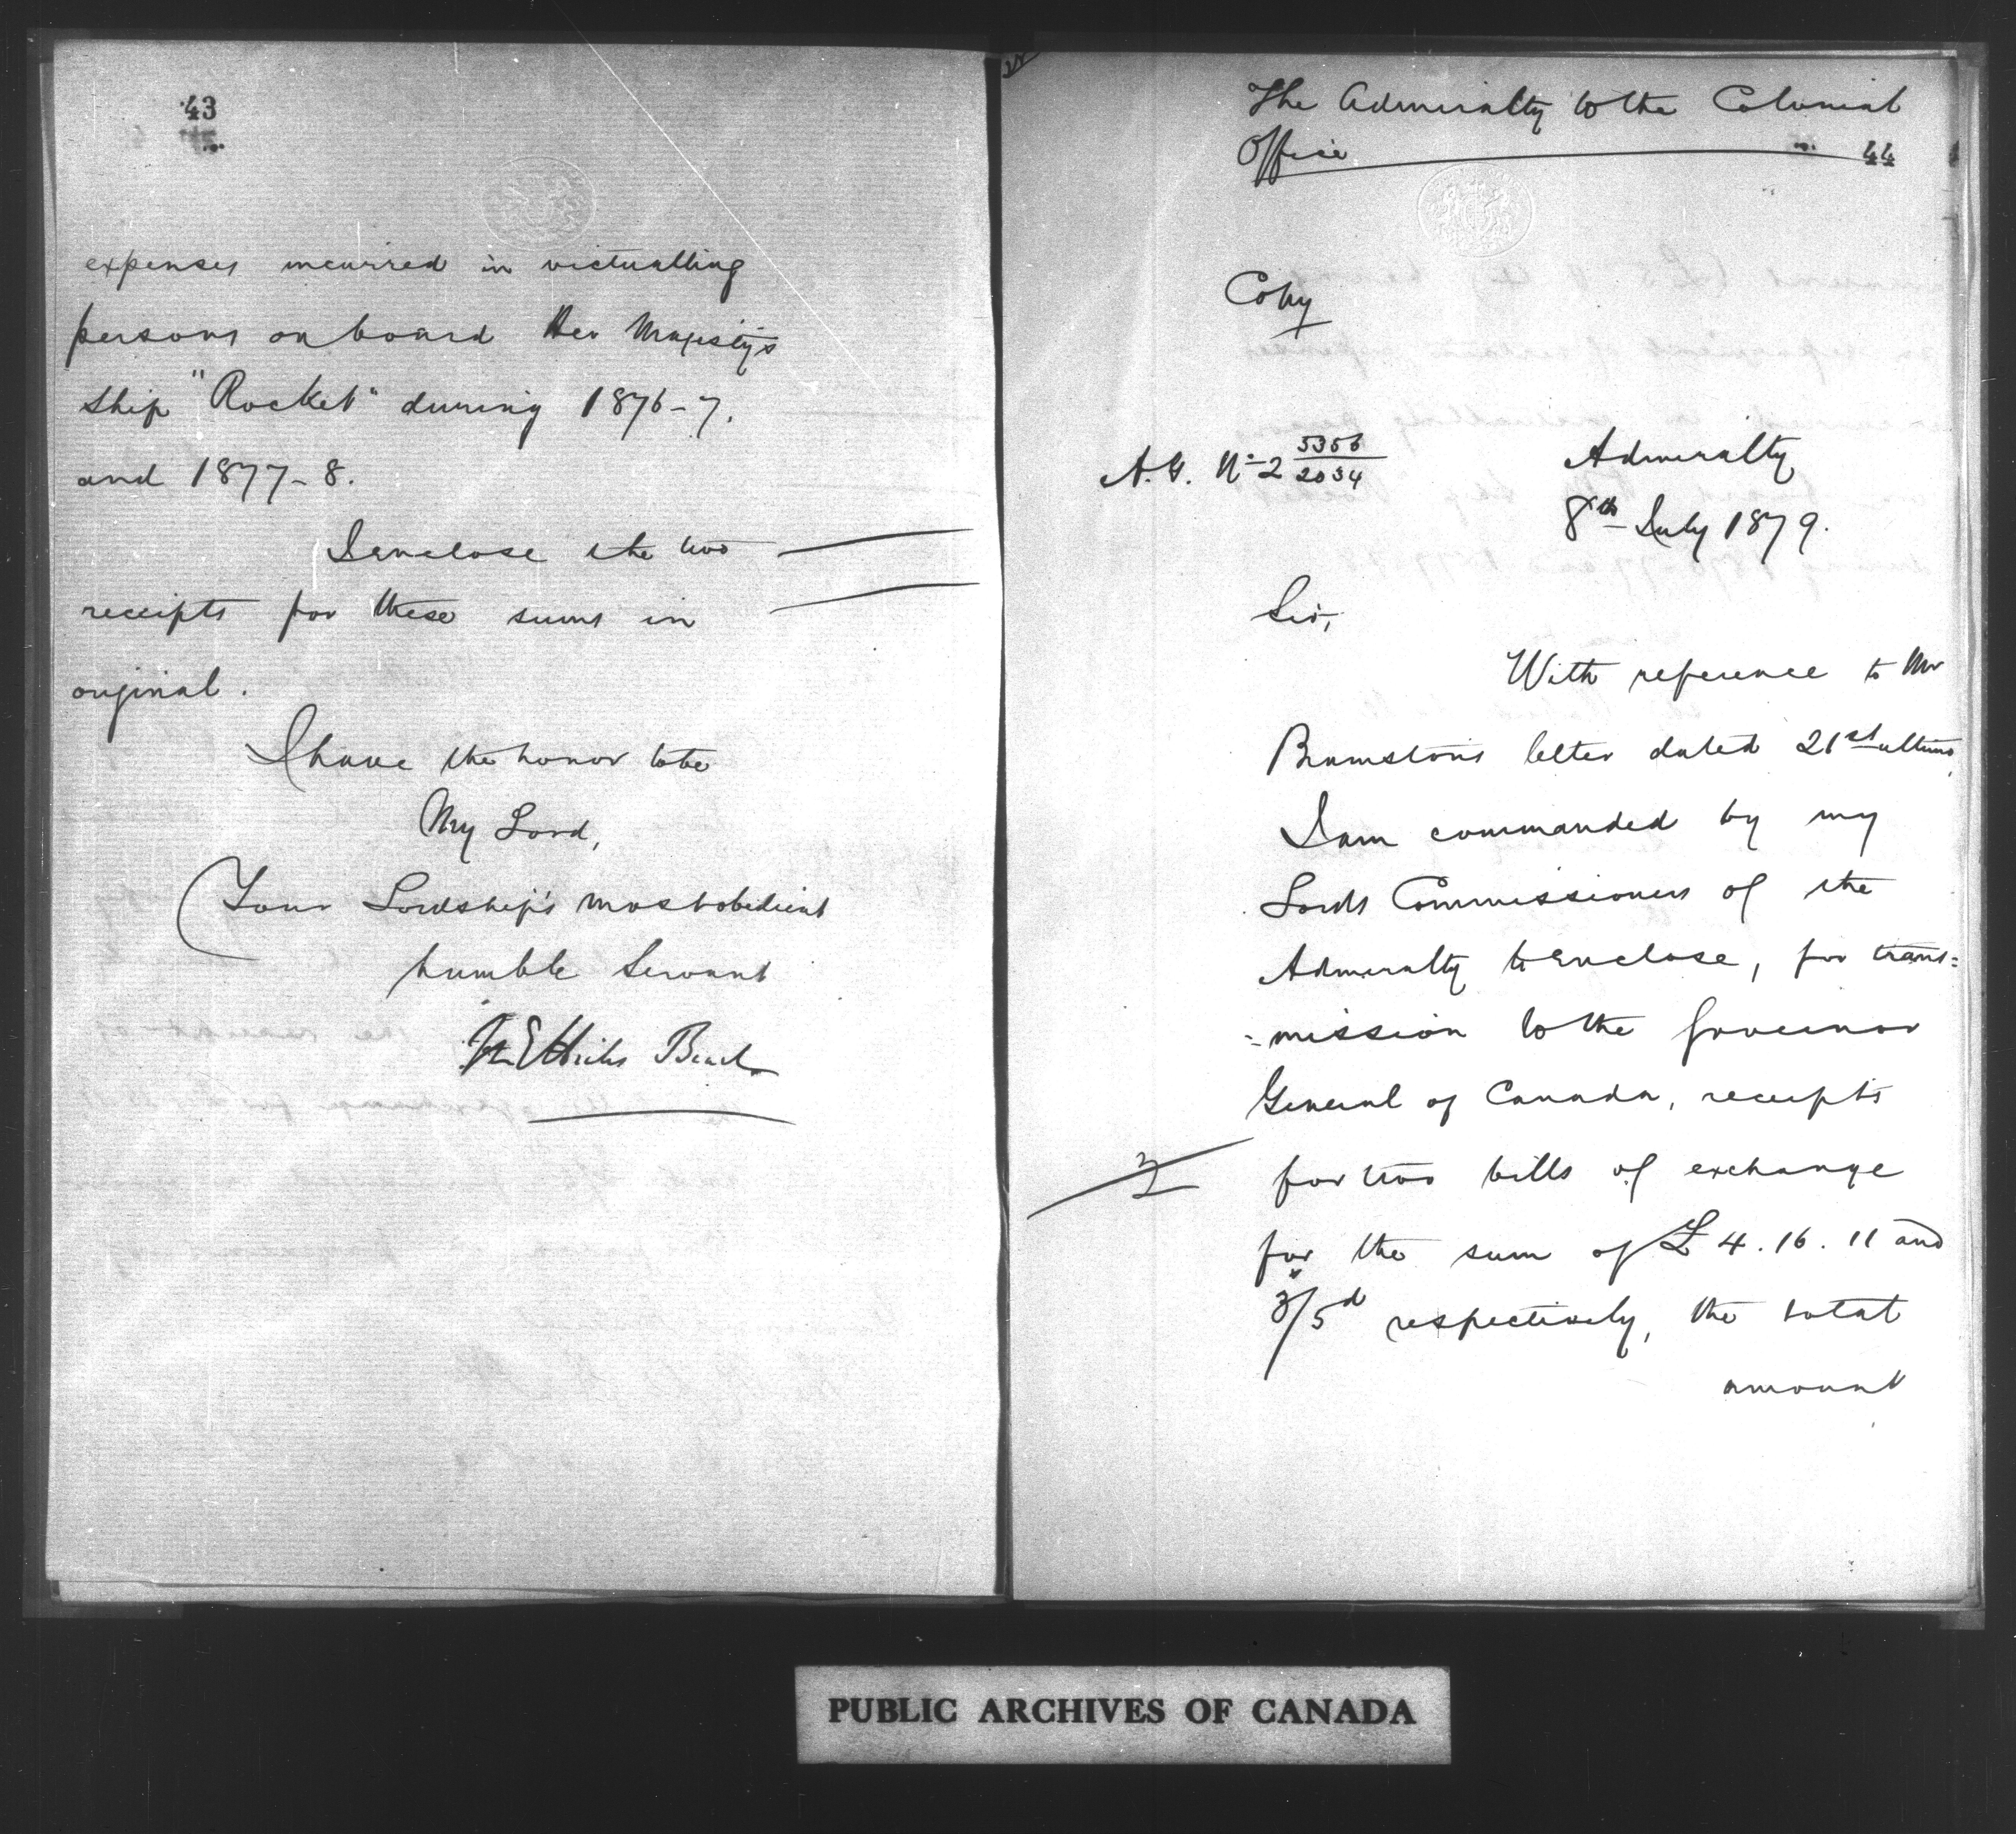 43
expenses incurred in victualling
persons on board Her Majesty's
Ship "Rocket" during 1876-7.
and 1877-8.
I enclose the two
receipts for these sums in
original.
I have the honor to be
My Lord,
Your Lordship's most obedient
humble Servant
M E Hicks Beach
The Admiralty to the Colonial
Office
44
Copy
A.G. No 2 5356/2034
Admiralty
8th July 1879.
Sir,
With reference to Mr
Bramston's letter dated 21st ultimo,
I am commanded by my
Lords Commissioners of the
Admiralty to enclose, for trans=
=mission to the Governor
General of Canada, receipts
2
for two bills of exchange
for the sum of £4.16.11 and
3/5d respectively, the total
amount
PUBLIC ARCHIVES OF CANADA